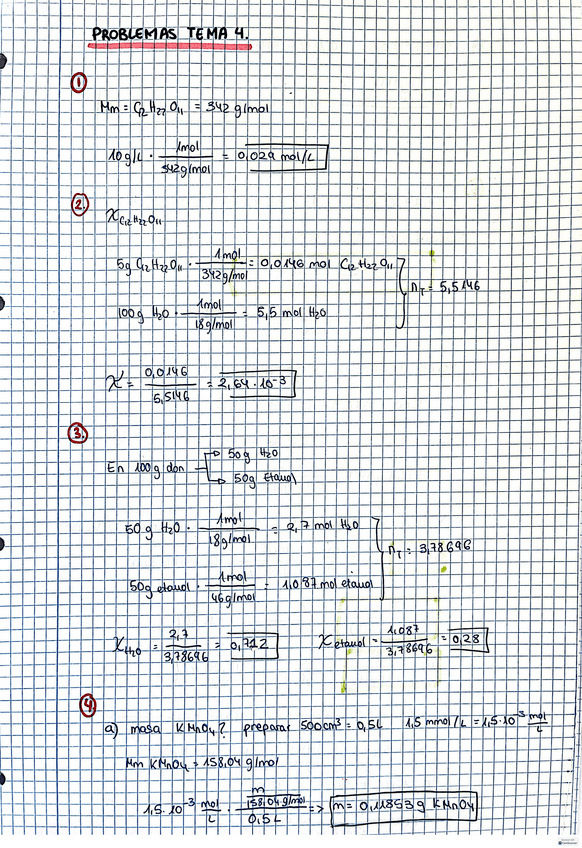 PROBLEMAS TEMA 4.
1
Mm = C12H22O11 = 342 g/mol
10 g/L · 1mol / 342g/mol = 0,029 mol/L
2.
XC12H22O11
5g C12H22O11 · 1mol / 342g/mol = 0,0146 mol C12H22O11
nT = 5,5146
100g H2O · 1mol / 18g/mol = 5,5 mol H2O
X = 0,0146 / 5,5146 = 2,64·10⁻³
3.
En 100g don → 50g H2O
→ 50g Etanol
50g H2O · 1mol / 18g/mol = 2,7 mol H2O
nT = 3,78696
50g etanol · 1mol / 46g/mol = 1,087 mol etanol
XH2O = 2,7 / 3,78696 = 0,712 Xetanol = 1,087 / 3,78696 = 0,28
4
a) masa KMnO4? preparar 500cm³ = 0,5L 1,5 mmol/L = 1,5·10⁻³ mol/L
Mm KMnO4 = 158,04 g/mol
1,5·10⁻³ mol/L · m / 158,04 g/mol / 0,5L => m = 0,11853 g KMnO4